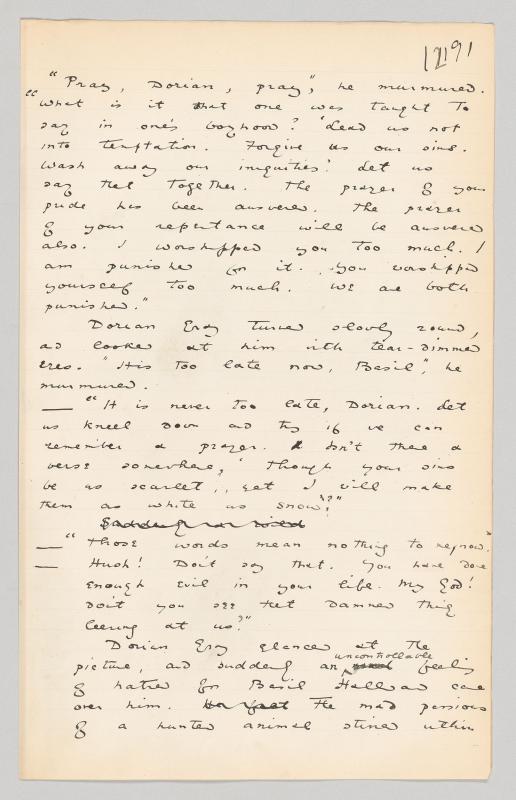 191
"Pray, Dorian, pray", he murmured.
"What is it that one was taught to
say in one's boyhood? 'Lead us not
into temptation. Forgive us our sins.
Wash away our iniquities.' Let us
say that together. The prayer of your
pride has been answered. The prayer
of your repentance will be answered
also. I worshipped you too much. I
am punished for it. You worshipped
yourself too much. We are both
punished."
Dorian Gray turned slowly round,
and looked at him with tear-dimmed
eyes. "It is too late now, Basil", he
murmured.
— "It is never too late, Dorian. Let
us kneel down and try if we can
remember a prayer. Isn't there a
verse somewhere, 'Though your sins
be as scarlet, yet I will make
them as white as snow'?"
— "Those words mean nothing to me now."
— Hush! Don't say that. You have done
enough evil in your life. My God!
Don't you see that damned thing
leering at us?"
Dorian Gray glanced at the
uncontrollable
picture, and suddenly an feeling
of hatred for Basil Hallward came
over him. The mad passions
of a hunted animal stirred within